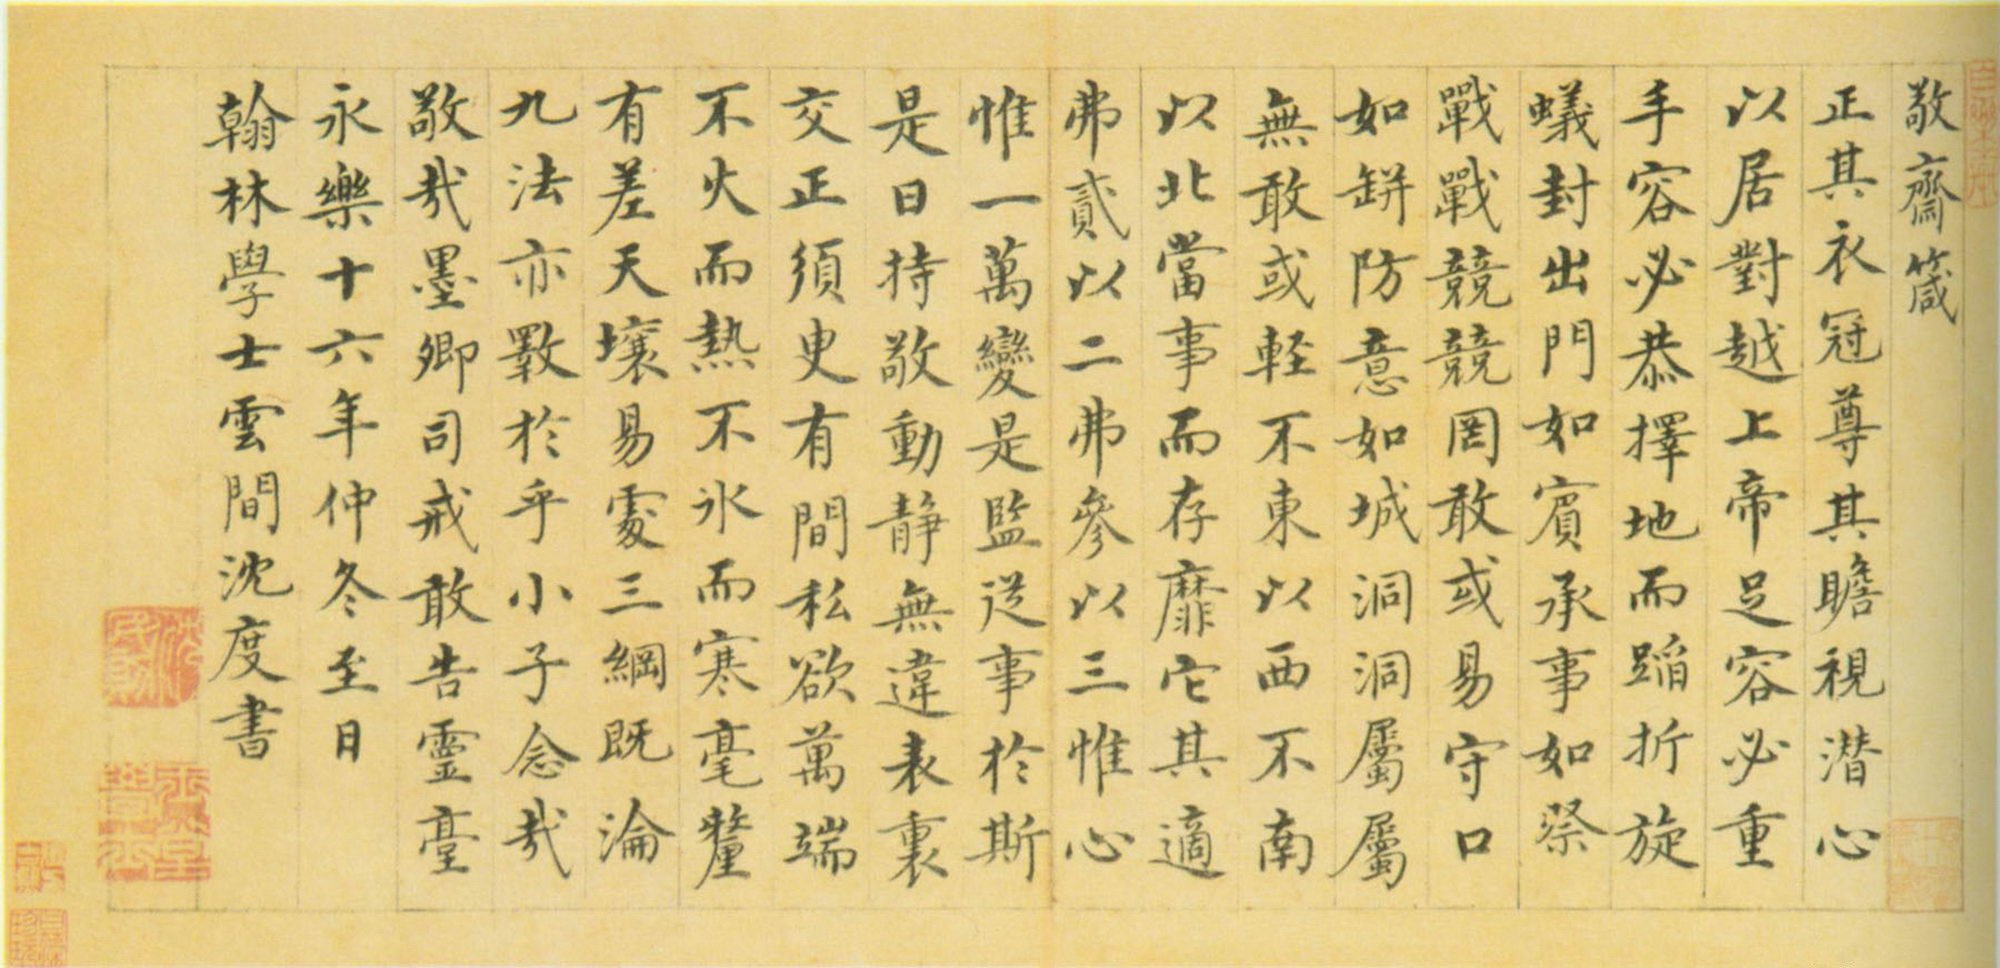 敬齋箴
正其衣冠尊其瞻視潜心
以居對越上帝足容必重
手容必恭擇地而蹈折旋
蟻封出門如賓承事如祭
戰戰兢兢罔敢或易守口
如缾防意如城洞洞屬屬
無敢或軽不東以西不南
以北當事而存靡它其適
弗貳以二弗參以三惟心
惟一萬變是監従事於斯
是日持敬動静無違表裏
交正須臾有間私欲萬端
不火而熱不氷而寒毫釐
有差天壤易處三綱既淪
九法亦斁於乎小子念哉
敬哉墨卿司戒敢告靈臺
永樂十六年仲冬至日
翰林學士雲間沈度書